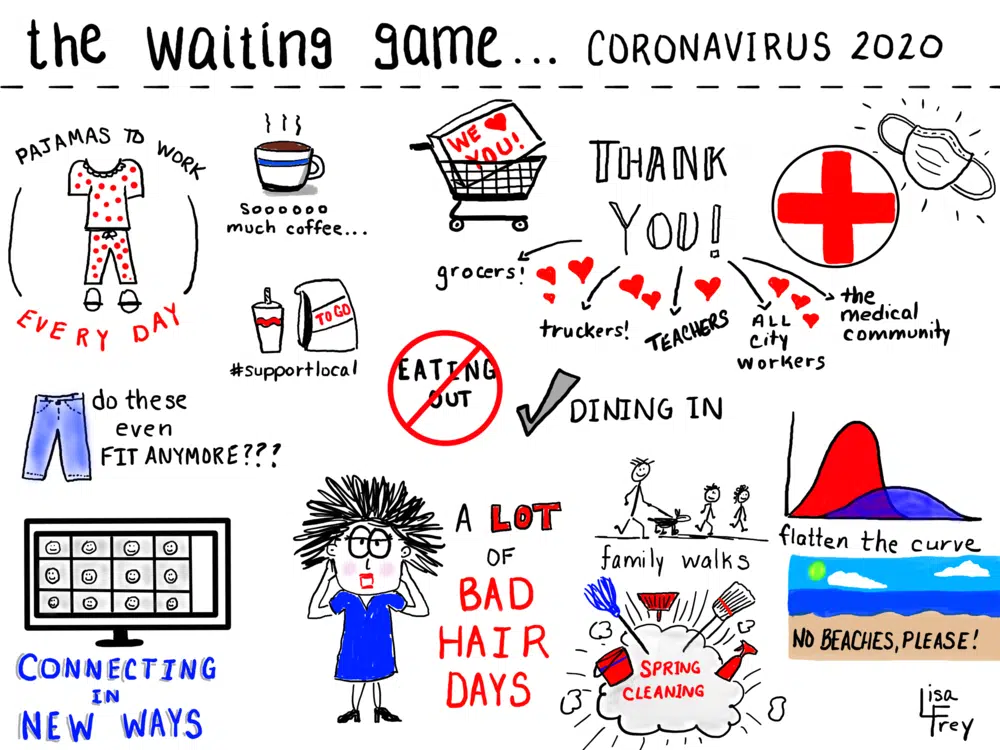 the waiting game... CORONAVIRUS 2020
PAJAMAS TO WORK
EVERY DAY
Soooooo
much coffee...
WE ♥
YOU!
THANK
YOU!
grocers!
truckers!
TEACHERS
ALL
City
workers
the
medical
community
TO GO
#supportlocal
EATING
OUT
DINING IN
do these
even
FIT ANYMORE???
A LOT
OF
BAD
HAIR
DAYS
family walks
flatten the curve
NO BEACHES, PLEASE!
SPRING
CLEANING
CONNECTING
IN
NEW WAYS
Lisa
Frey